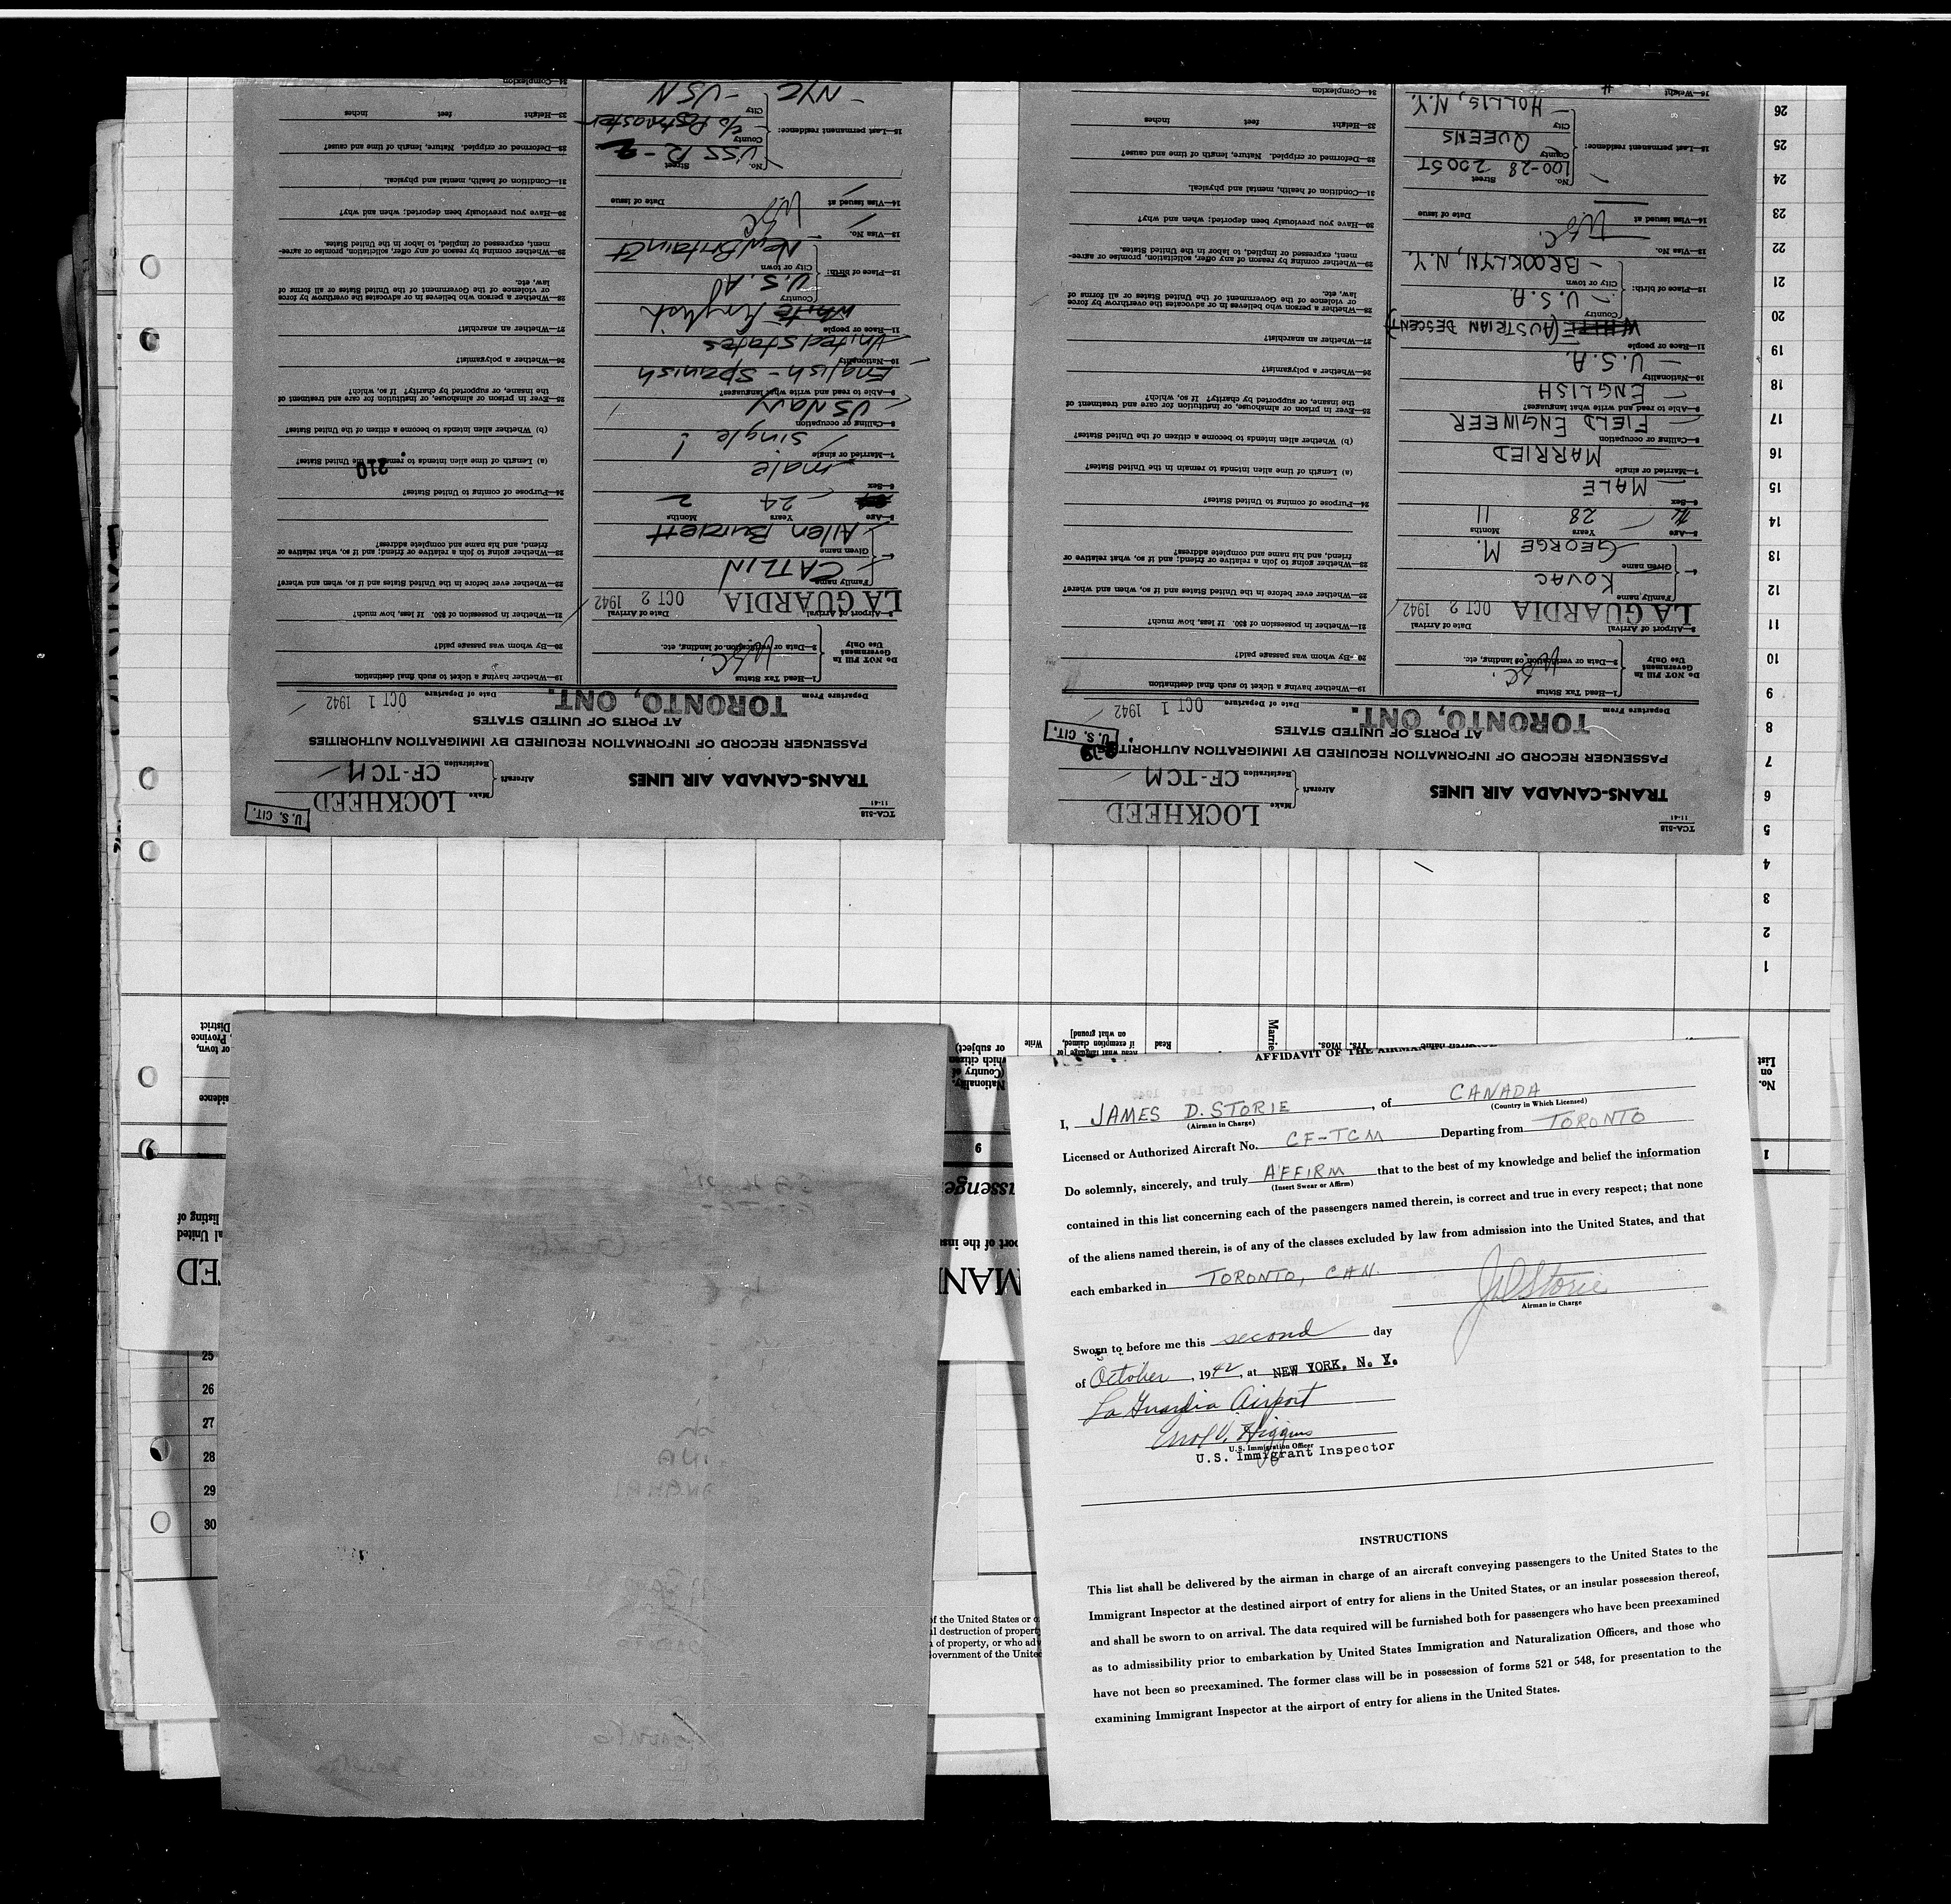 TCA-518
11-41
TRANS-CANADA AIR LINES
Aircraft { Make LOCKHEED
Registration CF-TCM
U. S. CIT.
PASSENGER RECORD OF INFORMATION REQUIRED BY IMMIGRATION AUTHORITIES
AT PORTS OF UNITED STATES
Departure From TORONTO, ONT. Date of Departure OCT 1 1942
Do NOT Fill In Government Use Only
1—Head Tax Status
2—Data or verification of landing, etc. USC.
3—Airport of Arrival LA GUARDIA Date of Arrival OCT 2 1942
4 { Family name KOVAC
Given name GEORGE M.
5—Age 28 Years 11 Months
6—Sex MALE
7—Married or single MARRIED
8—Calling or occupation FIELD ENGINEER
9—Able to read and write what languages? ENGLISH
10—Nationality U.S.A.
11—Race or people WHITE (AUSTRIAN DESCENT)
12—Place of birth: { Country U.S.A.
City or town BROOKLYN, N.Y.
13—Visa No. USC.
14—Visa issued at Date of issue
15—Last permanent residence: { No. Street 100-28 200 ST
County QUEENS
City HOLLIS, N.Y.
16—Weight
19—Whether having a ticket to such final destination
20—By whom was passage paid?
21—Whether in possession of $50. If less, how much?
22—Whether ever before in the United States and if so, when and where?
23—Whether going to join a relative or friend; and if so, what relative or
friend, and his name and complete address?
24—Purpose of coming to United States?
(a) Length of time alien intends to remain in the United States?
(b) Whether alien intends to become a citizen of the United States?
25—Ever in prison or almshouse, or institution for care and treatment of
the insane, or supported by charity? If so, which?
26—Whether a polygamist?
27—Whether an anarchist?
28—Whether a person who believes in or advocates the overthrow by force
or violence of the Government of the United States or all forms of
law, etc.
29—Whether coming by reason of any offer, solicitation, promise or agree-
ment, expressed or implied, to labor in the United States.
30—Have you previously been deported; when and why?
31—Condition of health, mental and physical.
32—Deformed or crippled. Nature, length of time and cause?
33—Height feet inches
34—Complexion
TCA-518
11-41
TRANS-CANADA AIR LINES
Aircraft { Make LOCKHEED
Registration CF-TCM
U. S. CIT.
PASSENGER RECORD OF INFORMATION REQUIRED BY IMMIGRATION AUTHORITIES
AT PORTS OF UNITED STATES
Departure From TORONTO, ONT. Date of Departure OCT 1 1942
Do NOT Fill In Government Use Only
1—Head Tax Status
2—Data or verification of landing, etc. USC.
3—Airport of Arrival LA GUARDIA Date of Arrival OCT 2 1942
4 { Family name CATLIN
Given name Allen Burdett
5—Age 24 Years 2 Months
6—Sex male
7—Married or single single
8—Calling or occupation US Navy
9—Able to read and write what languages? English - Spanish
10—Nationality United States
11—Race or people White English
12—Place of birth: { Country U.S.A
City or town New Britain Ct
13—Visa No. USC
14—Visa issued at Date of issue
15—Last permanent residence: { No. Street USS R-2
County c/o Postmaster
City - NYC - USN
19—Whether having a ticket to such final destination
20—By whom was passage paid?
21—Whether in possession of $50. If less, how much?
22—Whether ever before in the United States and if so, when and where?
23—Whether going to join a relative or friend; and if so, what relative or
friend, and his name and complete address?
24—Purpose of coming to United States?
(a) Length of time alien intends to remain in the United States? 210
(b) Whether alien intends to become a citizen of the United States?
25—Ever in prison or almshouse, or institution for care and treatment of
the insane, or supported by charity? If so, which?
26—Whether a polygamist?
27—Whether an anarchist?
28—Whether a person who believes in or advocates the overthrow by force
or violence of the Government of the United States or all forms of
law, etc.
29—Whether coming by reason of any offer, solicitation, promise or agree-
ment, expressed or implied, to labor in the United States.
30—Have you previously been deported; when and why?
31—Condition of health, mental and physical.
32—Deformed or crippled. Nature, length of time and cause?
33—Height feet inches
34—Complexion
No.
on
List
1
2
3
4
5
6
7
8
9
10
11
12
13
14
15
16
17
18
19
20
21
22
23
24
25
26
Yrs. Mos.
Read
Write
if exemption claimed,
on what ground]
Nationality.
(Country of
which citizen
or subject)
or town,
Province
District
9
25
26
27
28
29
30
of the United States or
destruction of property
of property, or who
AFFIDAVIT OF THE AIRMAN IN
I, JAMES D. STORIE, of CANADA
(Airman in Charge) (Country in Which Licensed)
Licensed or Authorized Aircraft No. CF-TCM Departing from TORONTO
Do solemnly, sincerely, and truly AFFIRM that to the best of my knowledge and belief the information
(Insert Swear or Affirm)
contained in this list concerning each of the passengers named therein, is correct and true in every respect; that none
of the aliens named therein, is of any of the classes excluded by law from admission into the United States, and that
each embarked in TORONTO, CAN.
JD Storie
Airman in Charge
Sworn to before me this second day
of October, 1942, at NEW YORK, N. Y.
La Guardia Airport
Errol V. Higgins
U.S. Immigration Officer
U.S. Immigrant Inspector
INSTRUCTIONS
This list shall be delivered by the airman in charge of an aircraft conveying passengers to the United States to the
Immigrant Inspector at the destined airport of entry for aliens in the United States, or an insular possession thereof,
and shall be sworn to on arrival. The data required will be furnished both for passengers who have been preexamined
as to admissibility prior to embarkation by United States Immigration and Naturalization Officers, and those who
have not been so preexamined. The former class will be in possession of forms 521 or 548, for presentation to the
examining Immigrant Inspector at the airport of entry for aliens in the United States.